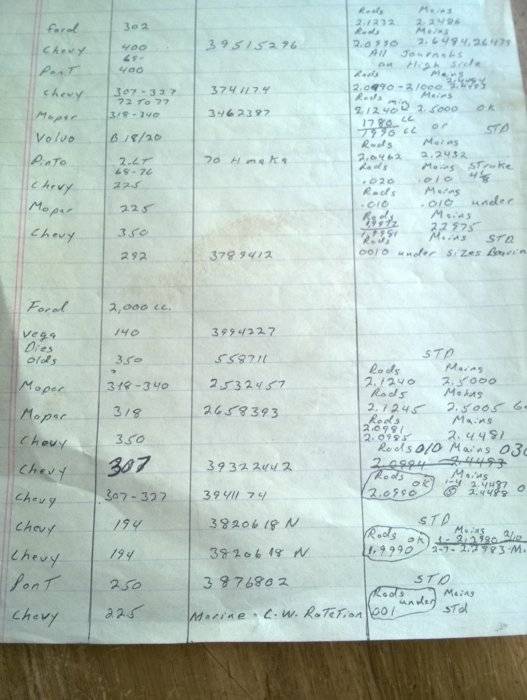 Rods Mains
Ford 302 2.1232 2.2486
Rods Mains
Chevy 400 39515296 2.0990 2.6484,26479
68- All Journals
Pont 400 on High side
Rods Mains
2.4484
Chevy 307-327 3741174 2.0990-21000 2.4483
72 To 77 Rods Mains
Mopar 318-340 3462387 2.1240 2.5000 OK
1780 cc
Volvo B 18/20 1990 cc or STD
Rods Mains
Pinto 2.LT 70 H maka 2.0462 2.2432
68-76 Rods Mains Stroke
Chevy 225 .020 .010 4 1/8
Rods Mains
Mopar 225 .010 .010 under
Rods Mains
Chevy 350 1.9981 2.2975
Rods Mains STD
292 3789412 0010 under sizes
Ford 2,000 cc.
Vega 140 3994227
Dies
Olds 350 558711 STD
Rods Mains
Mopar 318-340 2532457 2.1240 2.5000
Rods Mains
Mopar 318 2658393 2.1245 2.5005
Rods Mains
2.0981
Chevy 350 2.0985 2.4481
Rods 010 Mains 030
Chevy 307 39322442 2.0984 2.4483
Rods OK Mains
1-4 2.4487
Chevy 307-327 3941174 2.0990 5 2.4488
STD
Chevy 194 3820618 N Rods OK Mains
1-2.2980
Chevy 194 3820618 N 1.9990 2-7-2.2983
Pont 250 3876802 STD
Rods under Mains
Chevy 225 Marine - C.W. Rotetion 001 STd